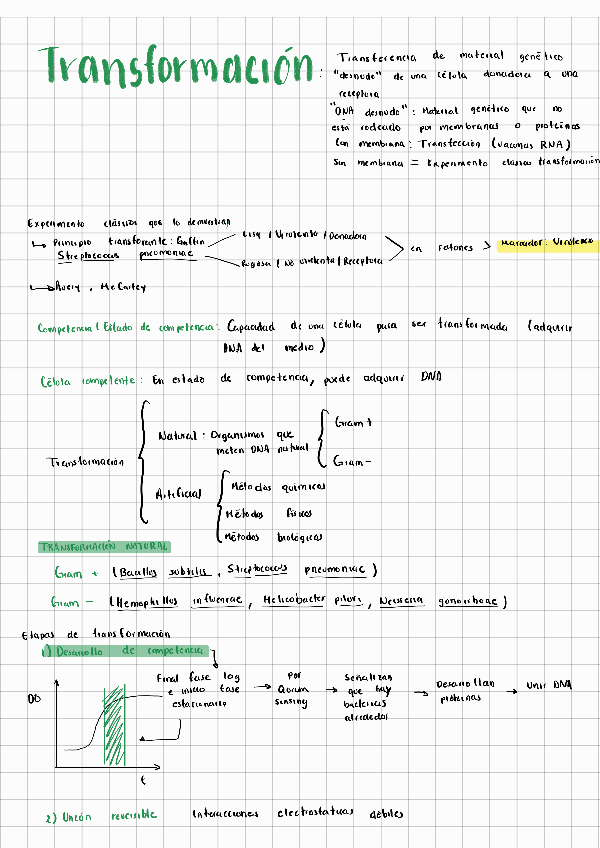 Transformación:
Transferencia de material genético
"desnudo" de una célula donadora a una
receptora
"DNA desnudo": Material genético que no
está rodeado por membranas o proteínas
Con membrana: Transfección (vacunas RNA)
Sin membrana = Experimento clásico transformación
Experimento clásicos que lo demuestran
↳ Principio transformante: Griffin
Streptococcus pneumoniae
Lisa / Virulenta / Donadora
Rugosa / No virulenta / Receptora
en ratones > Marcador: Virulencia
↳ Avery, McCartey
Competencia / Estado de competencia: Capacidad de una célula para ser transformada (adquirir
DNA del medio)
Célula competente: En estado de competencia, puede adquirir DNA
Transformación
Natural: Organismos que
meten DNA natural
Gram +
Gram -
Artificial
Métodos químicos
Métodos físicos
Métodos biológicos
TRANSFORMACIÓN NATURAL
Gram + (Bacillus subtilis, Streptococcus pneumoniae)
Gram - (Hemophillus influenzae, Helicobacter pilori, Neisseria gonorrhoae)
Etapas de transformación
1) Desarrollo de competencia
DO
t
Final fase log
e inicio fase
estacionario
→ Por
Qorum
sensing
→ Señalizan
que hay
bacterias
alrededor
→ Desarrollan
proteínas
→ Unir DNA
2) Unión reversible Interacciones electrostáticas débiles